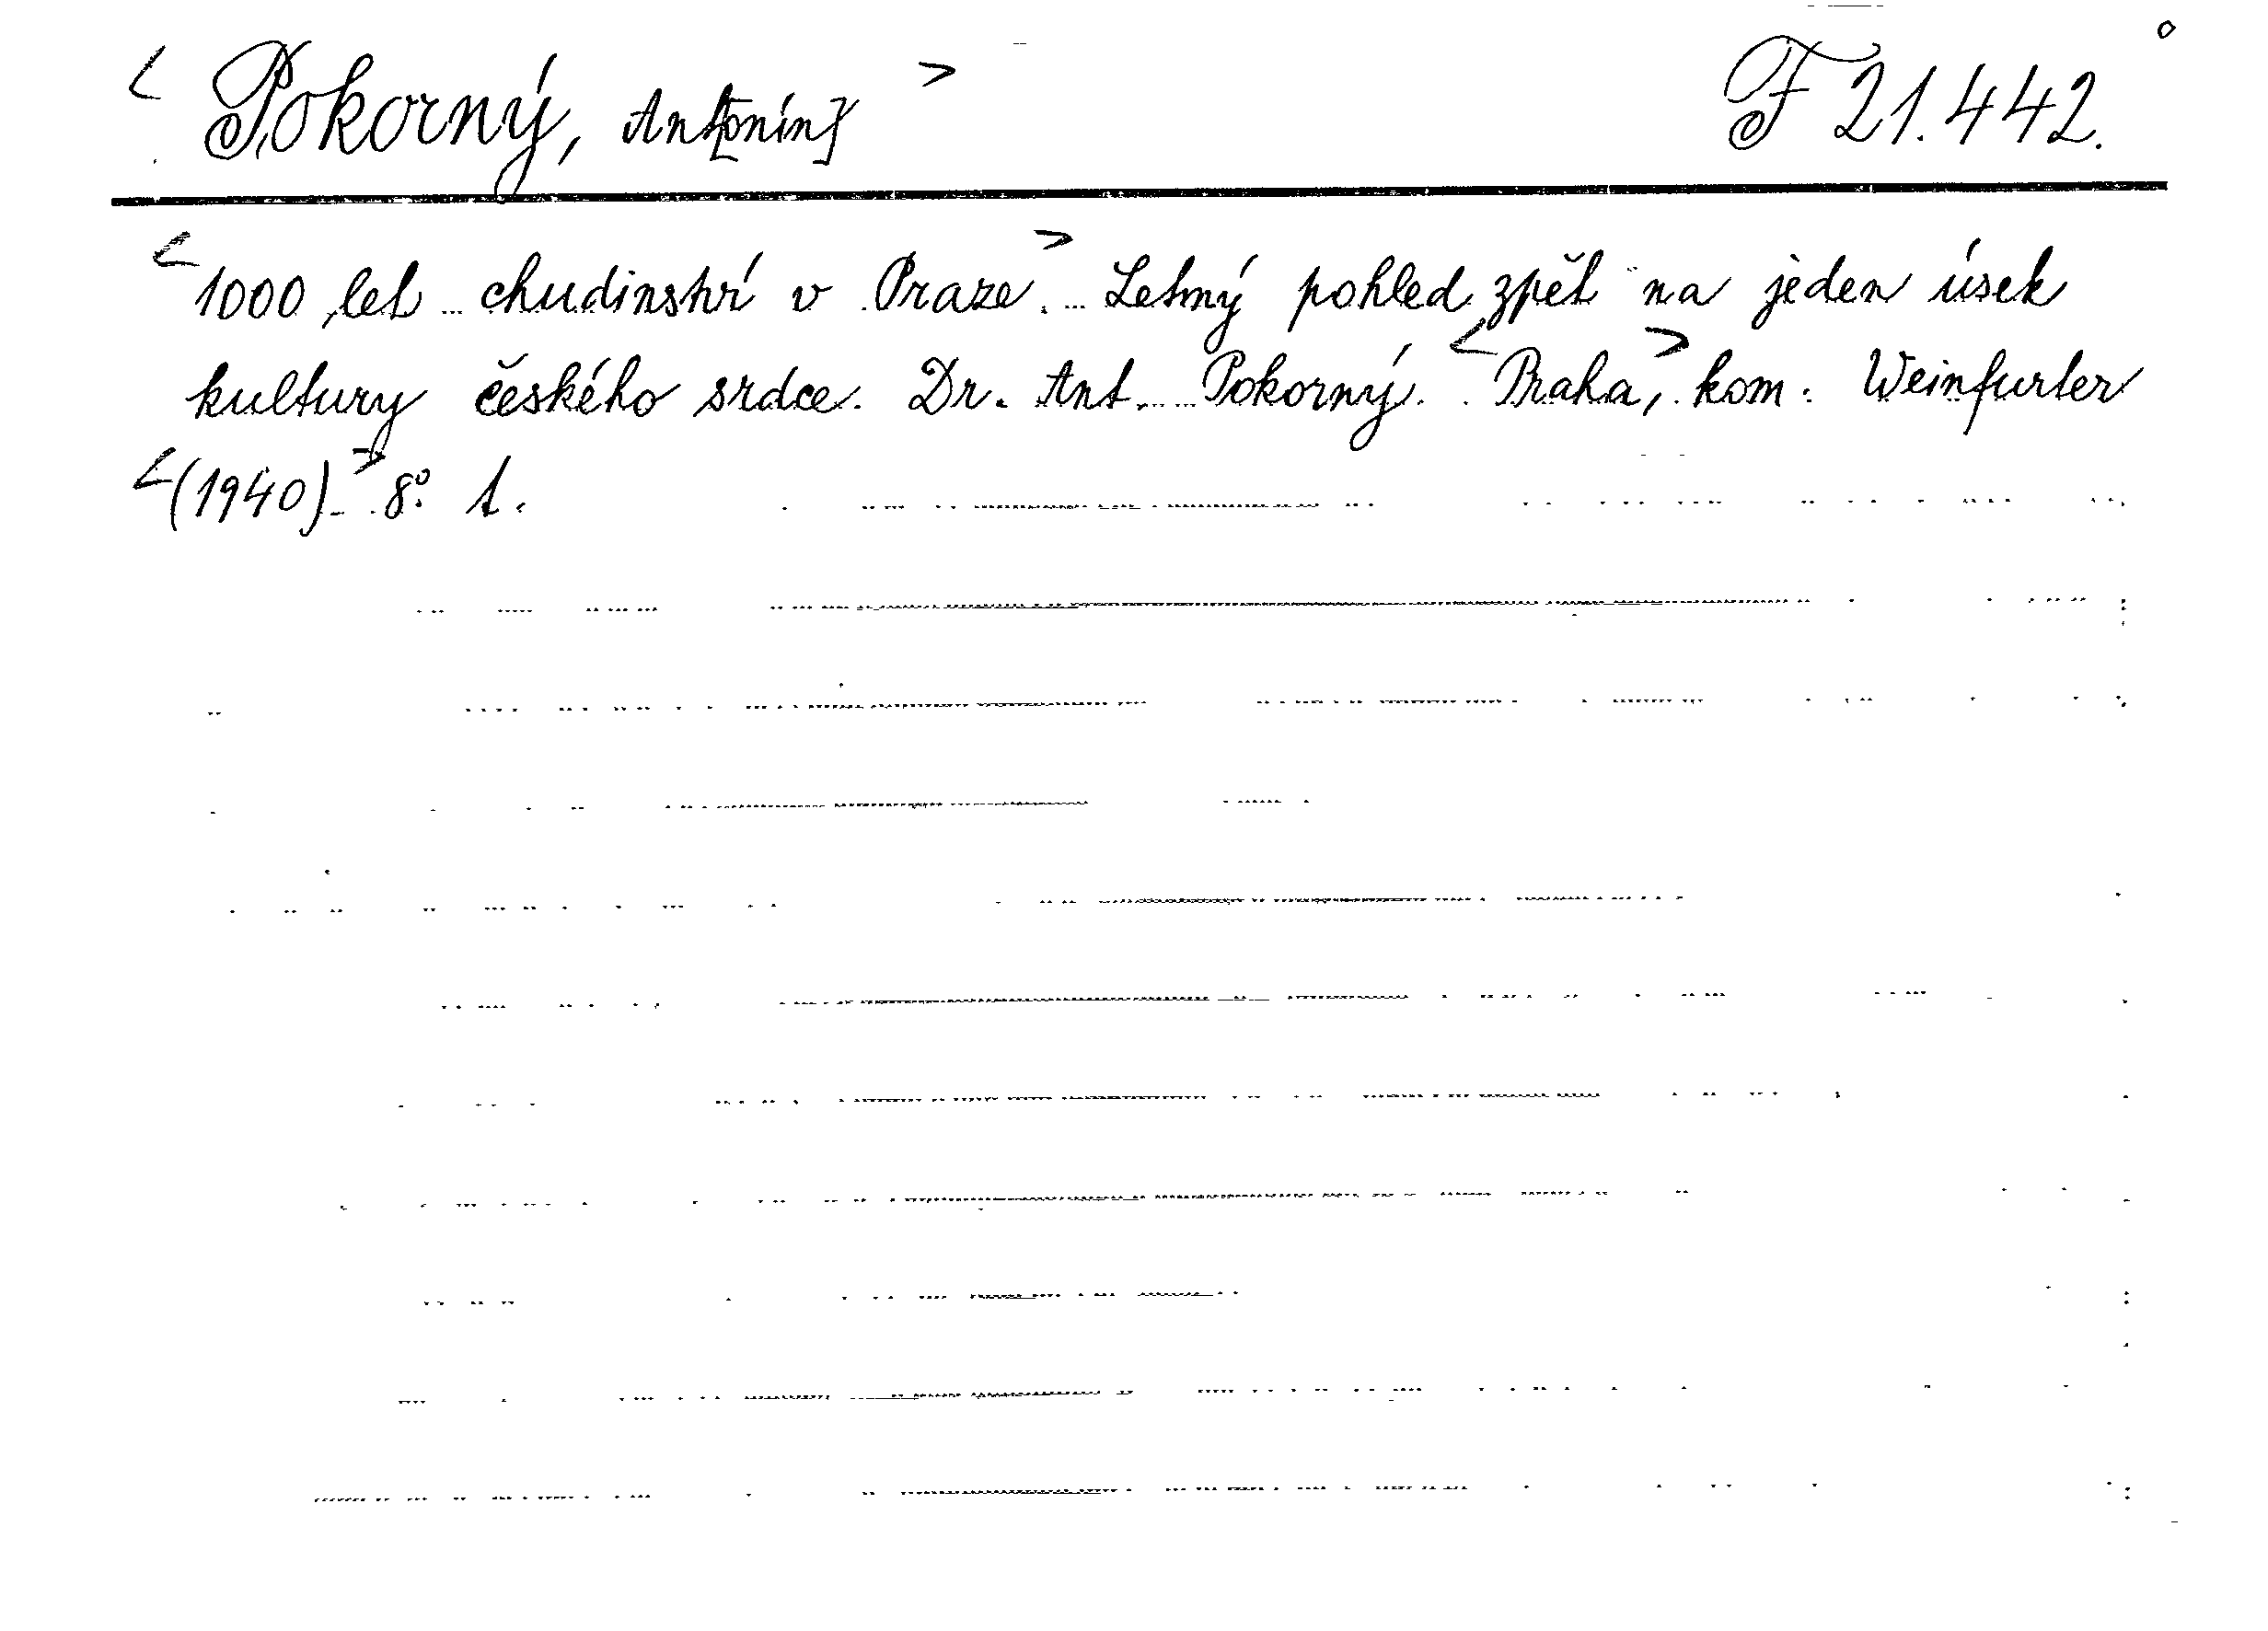 < Pokorný, Ant[onín] > F 21.442.
<1000 let chudinství v Praze.> Letmý pohled zpět na jeden úsek
kultury českého srdce. Dr. Ant. Pokorný. <Praha,> kom. Weinfurter
<(1940)> 8° 1.